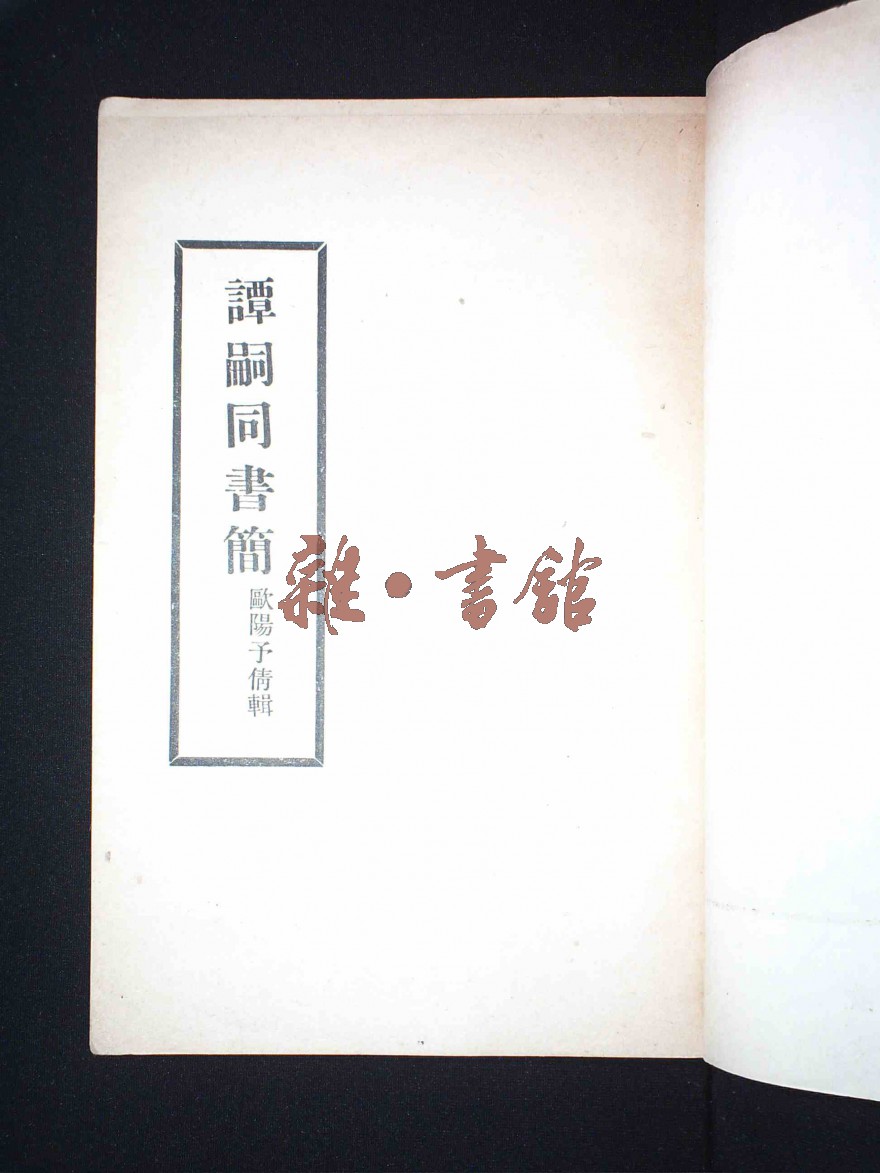 譚嗣同書簡
歐陽予倩輯
雜·書館